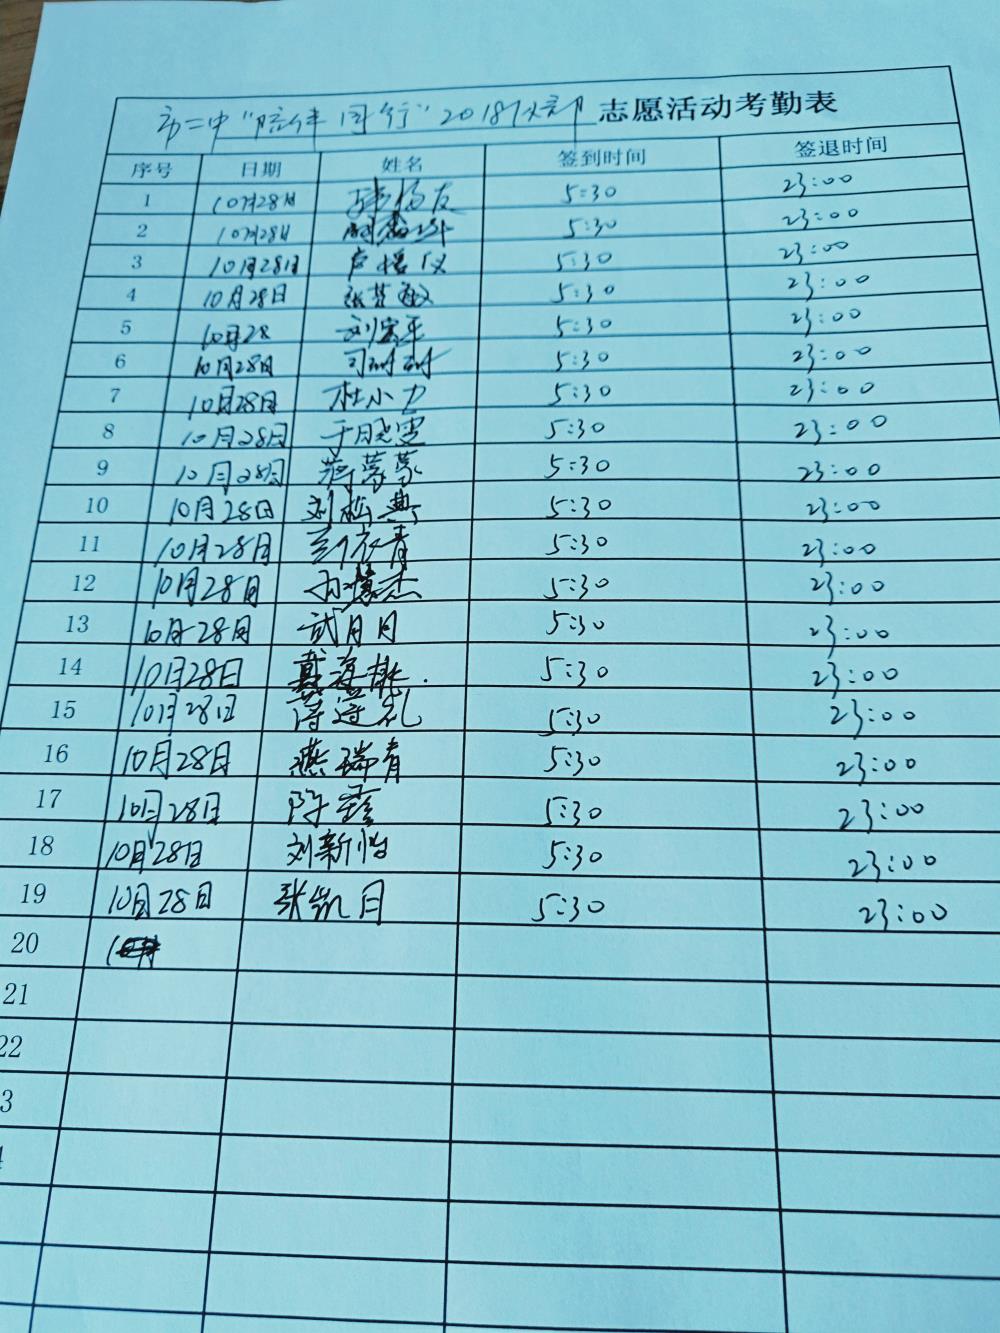 市二中"陪伴同行"2018 志愿活动考勤表
序号 日期 姓名 签到时间 签退时间
1 10月28日 5:30 23:00
2 10月28日 5:30 23:00
3 10月28日 卢 仪 5:30 23:00
4 10月28日 张 敏 5:30 23:00
5 10月28 刘宏平 5:30 23:00
6 10月28日 5:30 23:00
7 10月28日 杜小力 5:30 23:00
8 10月28日 于晓雪 5:30 23:00
9 10月28日 蒋蒙蒙 5:30 23:00
10 10月28日 刘松典 5:30 23:00
11 10月28日 青 5:30 23:00
12 10月28日 慧杰 5:30 23:00
13 10月28日 武月月 5:30 23:00
14 10月28日 戴海 5:30 23:00
15 10月28日 遵礼 5:30 23:00
16 10月28日 燕瑞青 5:30 23:00
17 10月28日 陈鑫 5:30 23:00
18 10月28日 刘新怡 5:30 23:00
19 10月28日 张凯月 5:30 23:00
20
21
22
3
4